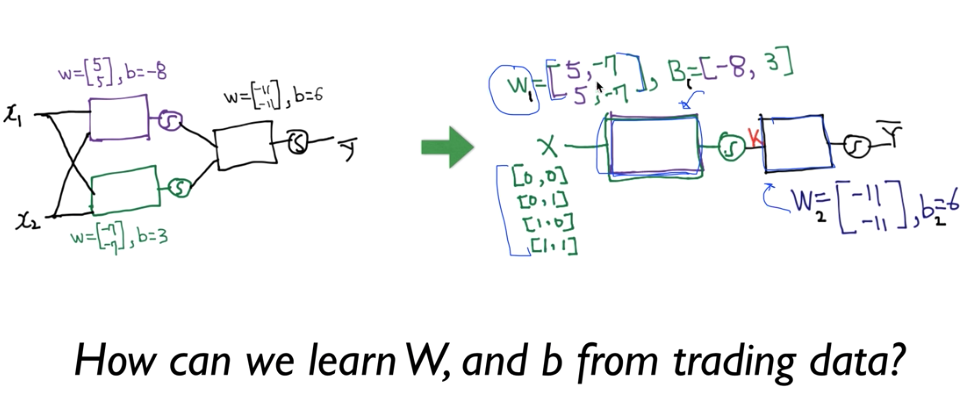 w=[5 5], b=-8
w=[-11 -11], b=6
x₁
S
S
S
ȳ
x₂
w=[-7 -7], b=3
W₁=[5, -7
5, -7], B₁=[-8, 3]
X
S
K
S
Ȳ
[0,0]
[0,1]
[1,0]
[1,1]
W₂=[-11 -11], b₂=6
How can we learn W, and b from trading data?